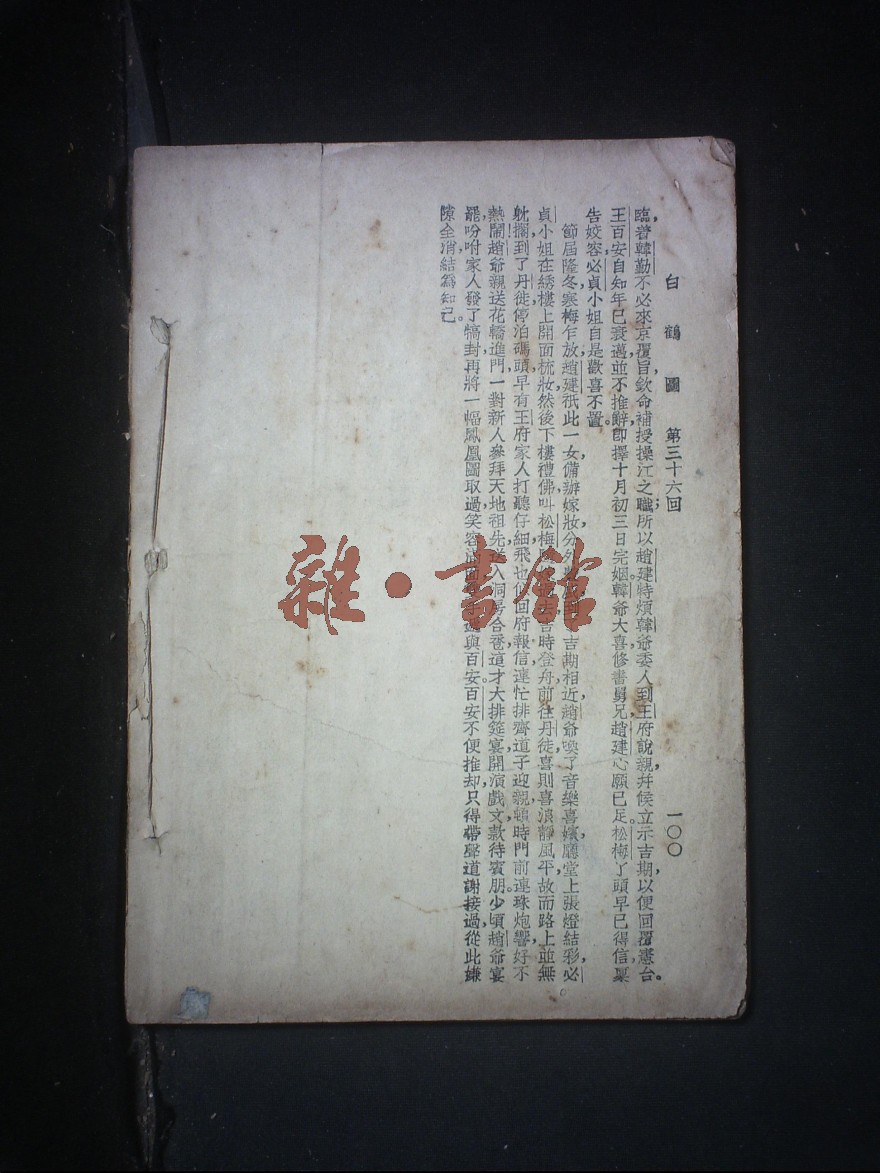 白鶴圖 第三十六回 一〇〇
臨着韓勤不必來京覆旨，欽命補授操江之職，所以趙建特煩韓爺委人到王府說親，幷候立示吉期，以便回覆憲台。
王百安自知年已衰邁，並不推辭，卽擇十月初三日完姻。韓爺大喜，修書舅兄，趙建心願已足。松梅丫頭早已得信，稟
告姣容必貞小姐，自是歡喜不置。
節屆隆冬，寒梅乍放，趙建祇此一女，備辦嫁妝，分外 吉期相近，趙爺喚了音樂喜嬪，廳堂上張燈結彩，必
貞小姐在綉樓上開面梳妝，然後下樓禮佛，叫松梅 吉時登舟，前往丹徒，喜則喜浪靜風平，故而路上並無
躭擱，到了丹徒，停泊碼頭，早有王府家人打聽仔細，飛也似回府報信，連忙排齊道子迎親，頓時門前連珠炮響，好不
熱鬧！趙爺親送花轎進門，一對新人參拜天地祖先，送入洞房合卺，這才大排筵宴，開演戲文，欵待賓朋。少頃，趙爺宴
罷，吩咐家人發了犒封，再將一幅鳳凰圖取過，笑容滿面 與百安。百安不便推却，只得帶聲道謝接過，從此嫌
隙全消，結爲知己。
雜·書館